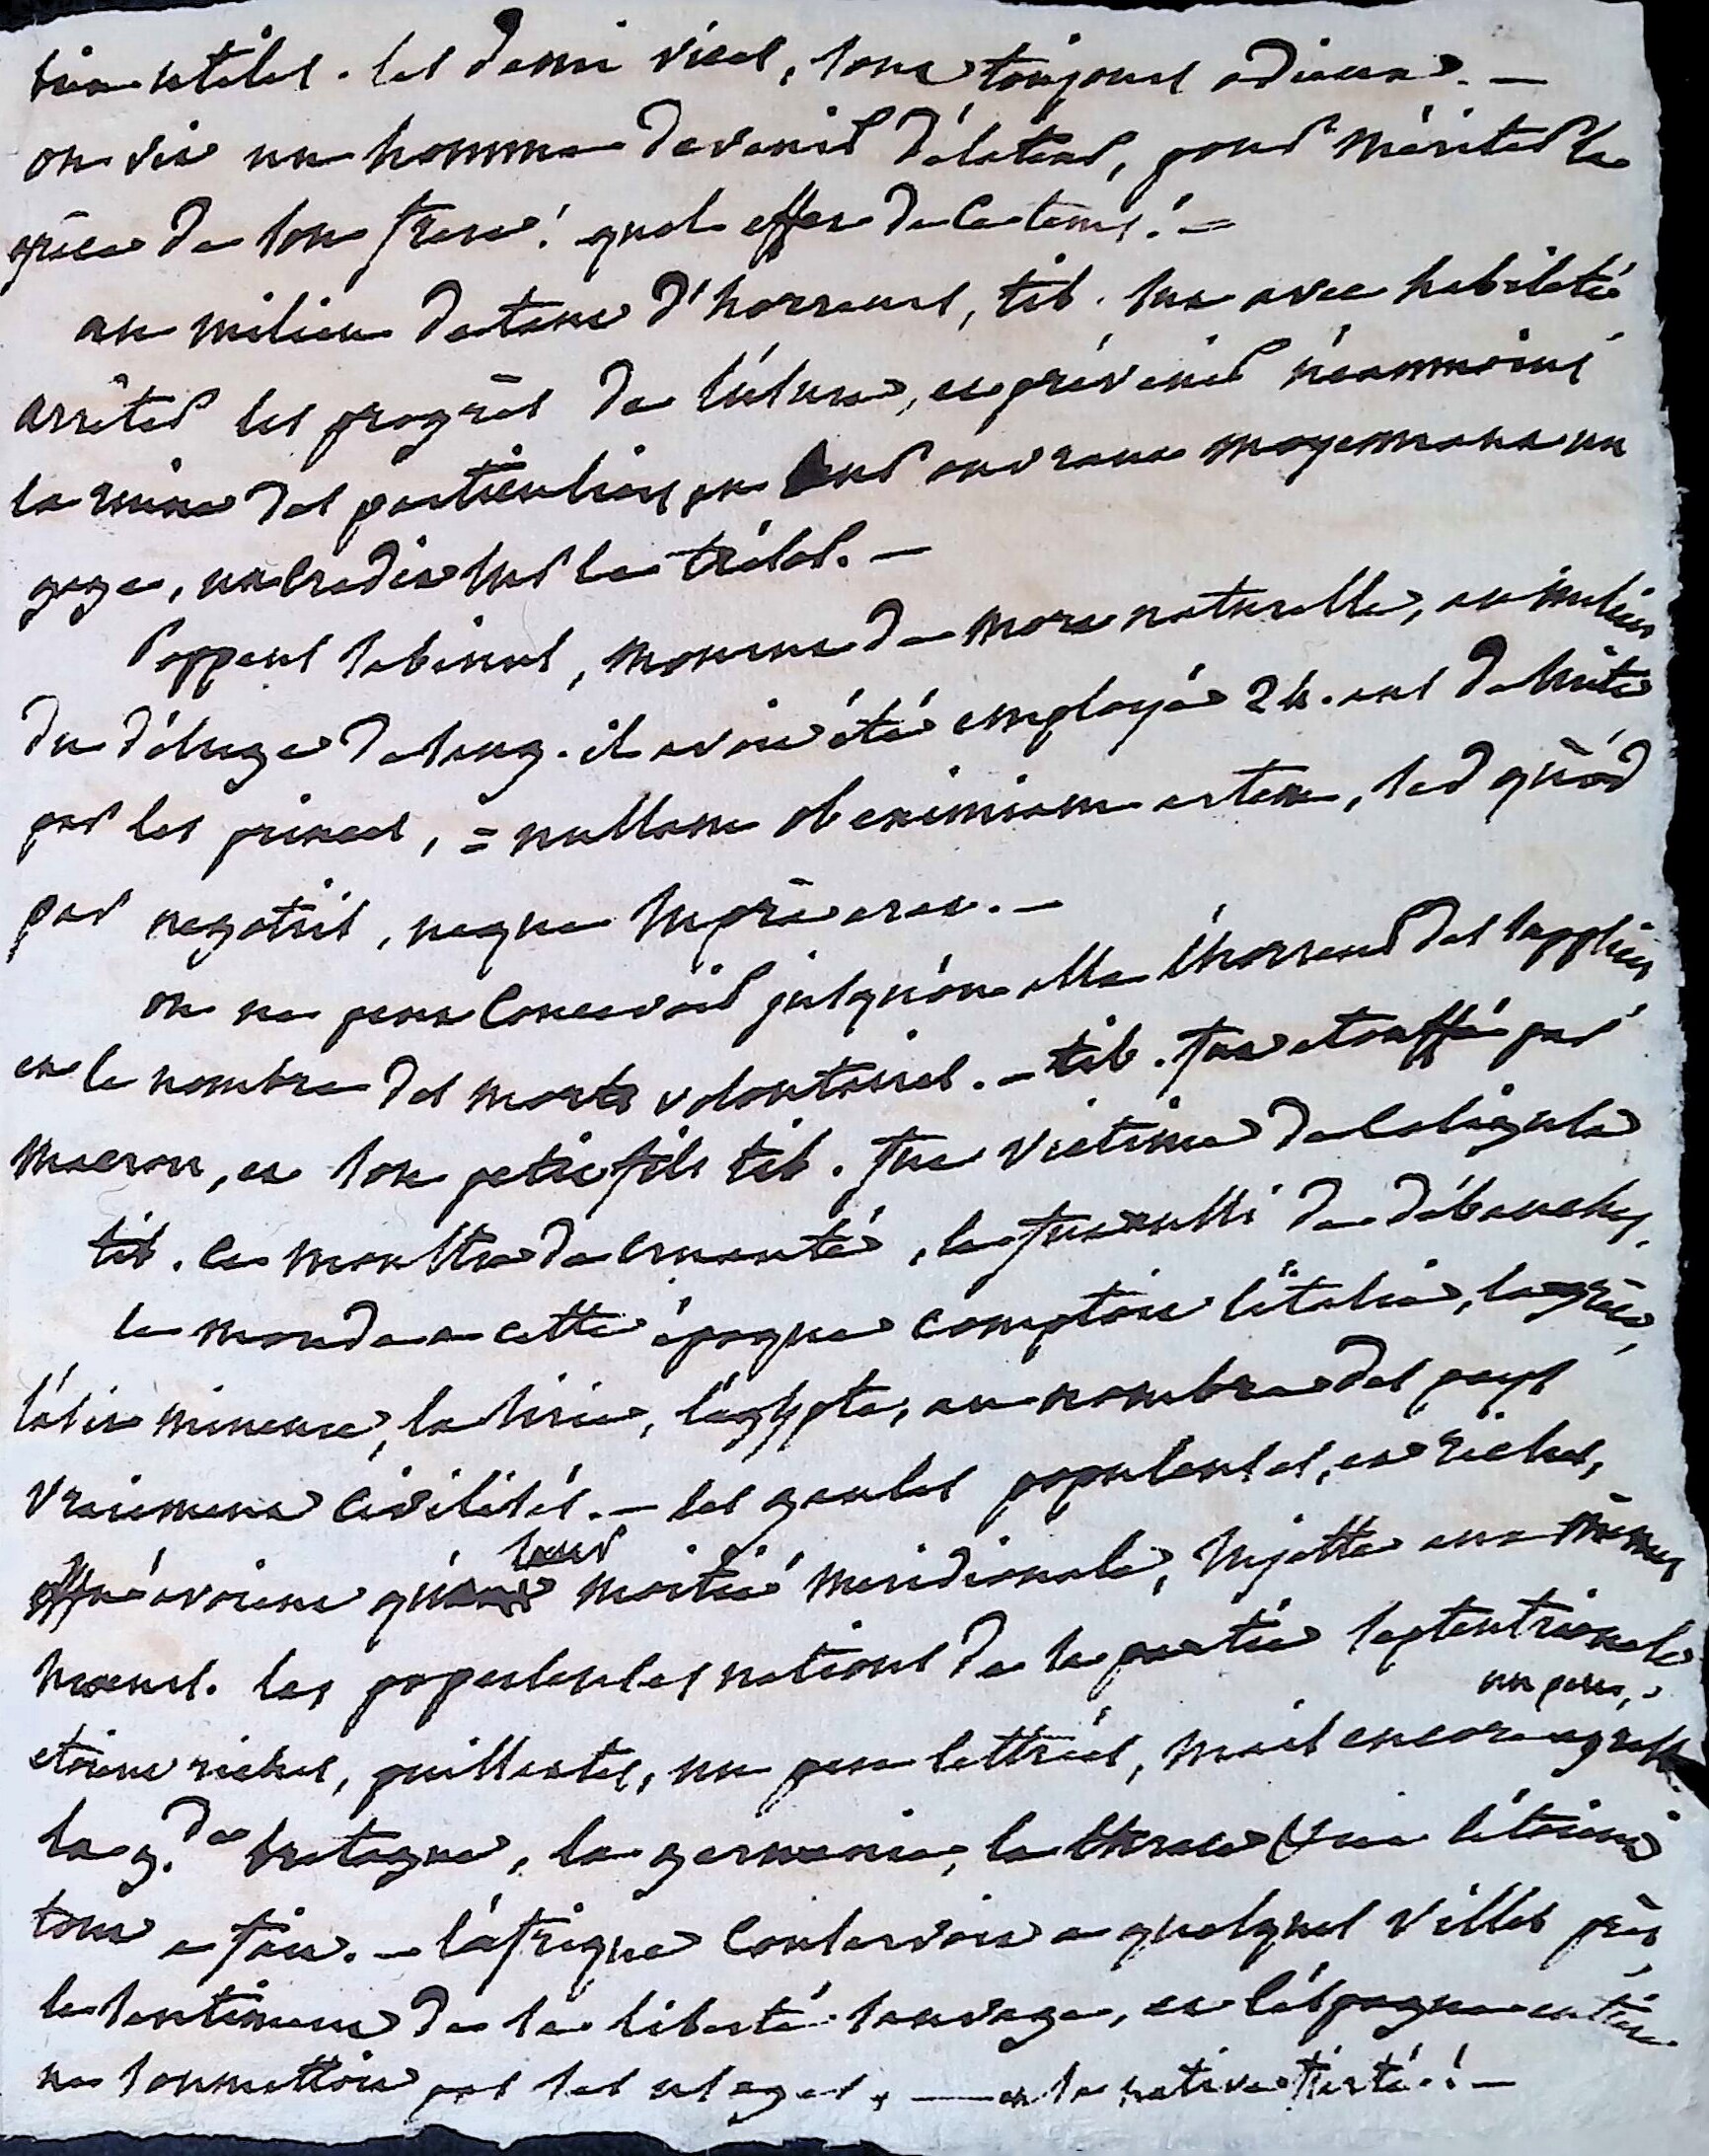 bien utiles. les demi vices, sont toujours odieux. —
on vit un homme devenir délateur, pour mériter la
grâce de son frere! quel effet de ce tems! =
au milieu de tant d'horreurs, tib. sut avec habileté
arrêter les progrès de l'usure, et prévenir néanmoins
la ruine des particuliers en leur ouvrant moyennant un
gage, un credit sur le trésor. —
Poppeus sabinus, mourut de mort naturelle, au milieu
du déluge de sang. il avoit été employé 24. ans de suite
par les princes, = nullam ob eximiam artem, sed quod
par negotiis, neque supra erat. —
on ne peut concevoir jusqu'où alla l'horreur des supplices
et le nombre des morts volontaires. — tib. fut etouffé par
macron, et son petit fils tib. fut victime de caligula
tib. ce monstre de cruauté, le fut aussi de débauches,
le monde a cette époque comptoit l'italie, la grèce,
l'asie mineure, la sirie, l'égypte, au nombre des pays
vraiment civilisés. — les gaules populeuses, et riches,
n'avoient qu'à leur moitié méridionale, sujette aux mêmes
mœurs. les populeuses nations de la partie septentrionale
etoient riches, vaillantes, un peu lettrées, mais encore un peu, agrestes
la g.de bretagne, la germanie, la thrace l'étoient
tout a fait. — l'afrique conservoit a quelques villes près,
le sentiment de la liberté sauvage, et l'espagne entière
ne soumettoit pas ses usages, — et sa native fierté.! —